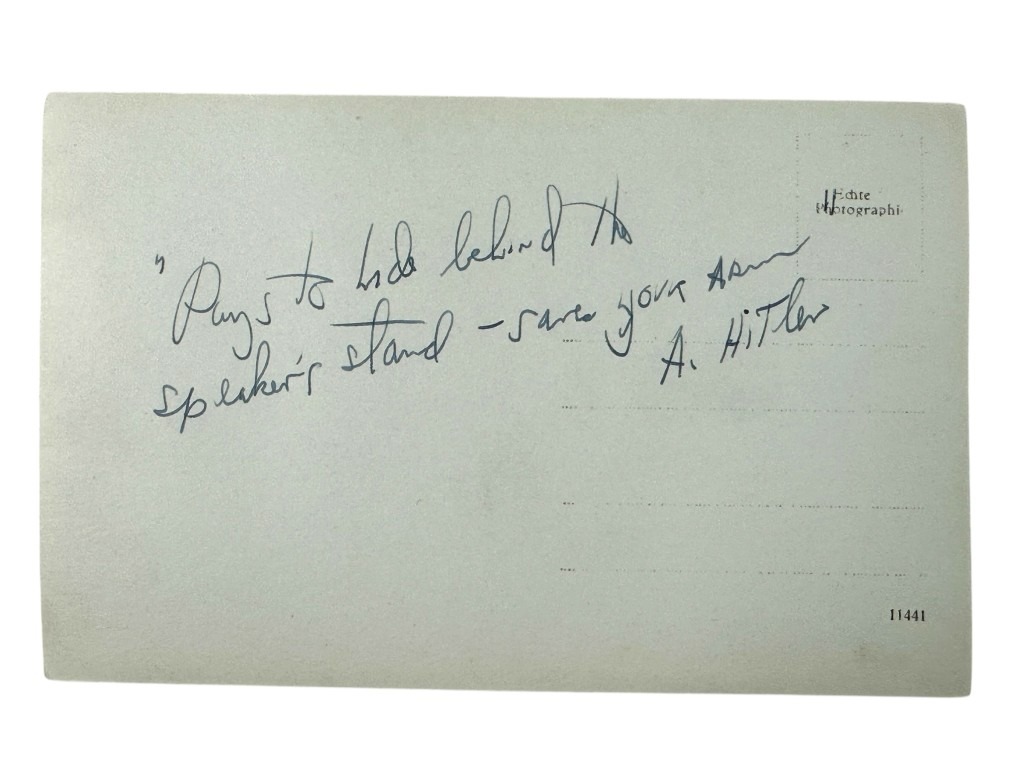 Echte
Photographi
" Pays to hide behind the
speaker's stand – saves your arm
A. Hitler
11441